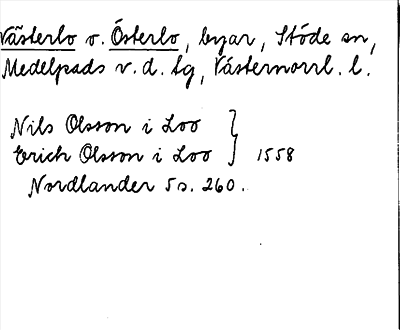 Västerlo o. Österlo, byar, Stöde sn,
Medelpads v. d. tg, Västernorrl. l.
Nils Olsson i Loo
Erich Olsson i Loo } 1558
Nordlander 5 s. 260.